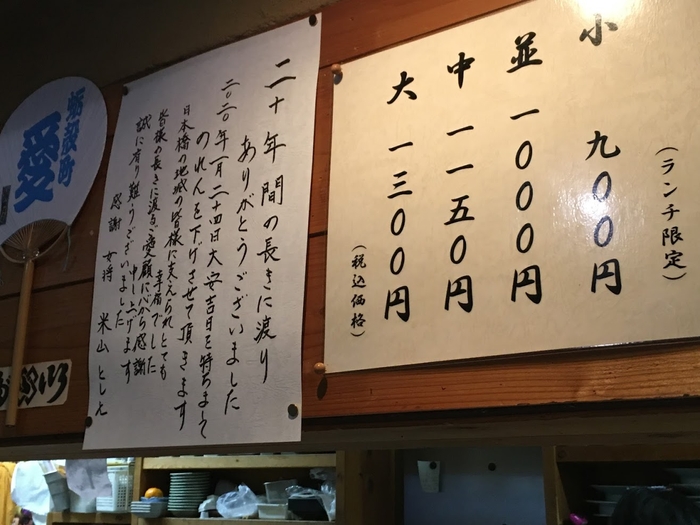 小 九〇〇円
(ランチ限定)
並 一〇〇〇円
中 一一五〇円
大 一三〇〇円
(税込価格)
二十年間の長きに渡り
ありがとうございました
二〇二〇年一月二十四日大安吉日を持ちまして
のれんを下げさせて頂きます
日本橋の地域の皆様に支えられとても
幸福でした
皆様の長きに渡るご愛顧に心から感謝
申し上げます
誠に有り難うございました
感謝 女将 米山 とし
蛎殻町
愛